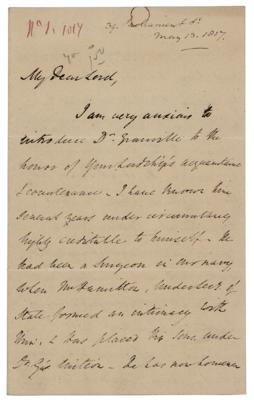 No 1. 1817
39 Parliament St.
May 13. 1817.
My dear Lord,
I am very anxious to
introduce Dr. Granville to the
honor of your Lordship's acquaintance
& countenance - I have known him
several years under circumstances
highly creditable to himself. He
had been a Surgeon in our navy
when Mr Hamilton, Undersec. of
State formed an intimacy with
him & has placed his sons under
Dr. G's tuition - He has now however